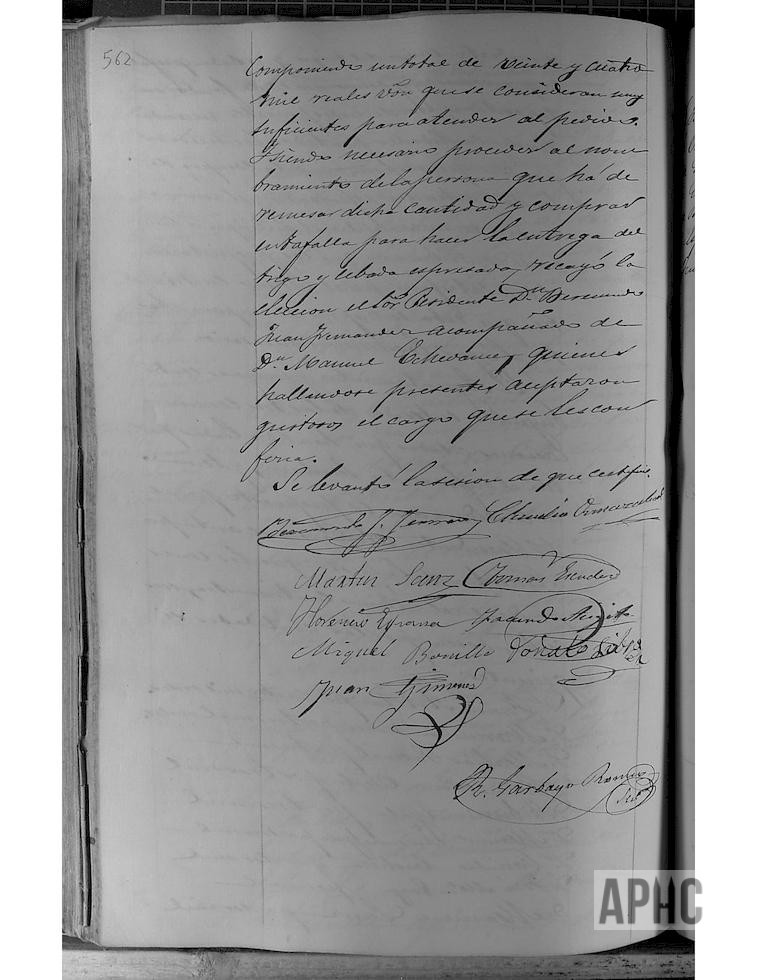 562
Componiendo un total de veinte y cuatro
mil reales vón que se consideran muy
suficientes para atender al pedido.
Y siendo necesario proceder al nom
bramiento de la persona que há de
remesar dicha cantidad y comprar
en Tafalla para hacer la entrega del
trigo y cebada espresada, recayó la
eleccion el Sor Presidente Dn Bermundo
Juan Fernandez acompañado de
Dn Manuel Echevarne, quienes
hallandose presentes aceptaron
gustosos el cargo que se les con
feria.
Se levantó la sesion de que certifico.
J. Claudio
Martin Sanz Tomás
Florencio Facundo
Miguel Bonilla
Juan Gimenez
R. Garbayo
Srio
APHC